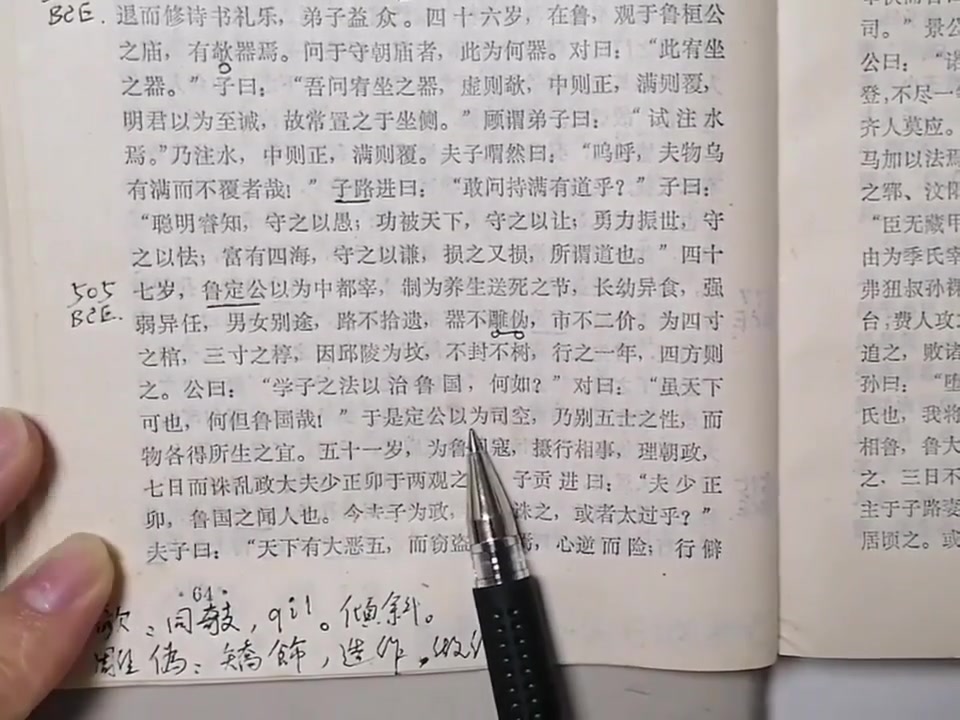 BCE.
退而修诗书礼乐，弟子益众。四十六岁，在鲁，观于鲁桓公
之庙，有欹器焉。问于守朝庙者，此为何器。对曰：“此宥坐
之器。”子曰：“吾问宥坐之器，虚则欹，中则正，满则覆，
明君以为至诚，故常置之于坐侧。”顾谓弟子曰：“试注水
焉。”乃注水，中则正，满则覆。夫子喟然曰：“呜呼，夫物乌
有满而不覆者哉！”子路进曰：“敢问持满有道乎？”子曰：
“聪明睿知，守之以愚；功被天下，守之以让；勇力振世，守
之以怯；富有四海，守之以谦，损之又损，所谓道也。”四十
505
BCE.
七岁，鲁定公以为中都宰，制为养生送死之节，长幼异食，强
弱异任，男女别途，路不拾遗，器不雕伪，市不二价。为四寸
之棺，三寸之椁，因邱陵为坟，不封不树，行之一年，四方则
之。公曰：“学子之法以治鲁国，何如？”对曰：“虽天下
可也，何但鲁国哉！”于是定公以为司空，乃别五土之性，而
物各得所生之宜。五十一岁，为鲁司寇，摄行相事，理朝政，
七日而诛乱政大夫少正卯于两观之 子贡进曰：“夫少正
卯，鲁国之闻人也。今夫子为政， 诛之，或者太过乎？”
夫子曰：“天下有大恶五，而窃盗 焉，心逆而险；行僻
·64·
欹：同攲，qī。倾斜。
雕伪：矫饰，造作，做
司。”景公
公曰：“诺
登，不尽一
齐人莫应。
马加以法焉
之郓、汶阳
“臣无藏甲
由为季氏宰
弗狃叔孙
台；费人攻
追之，败诸
孙曰：“堕
氏也，我将
相鲁，鲁大
之，三日不
主于子路妻
居顷之。或